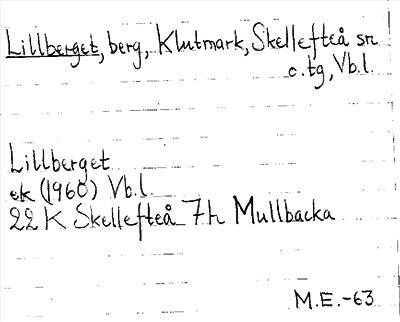 Lillberget, berg, Klutmark, Skellefteå sn
c. tg, Vb.l.
Lillberget
ek (1960) Vb.l.
22 K Skellefteå 7h Mullbacka
M.E.-63